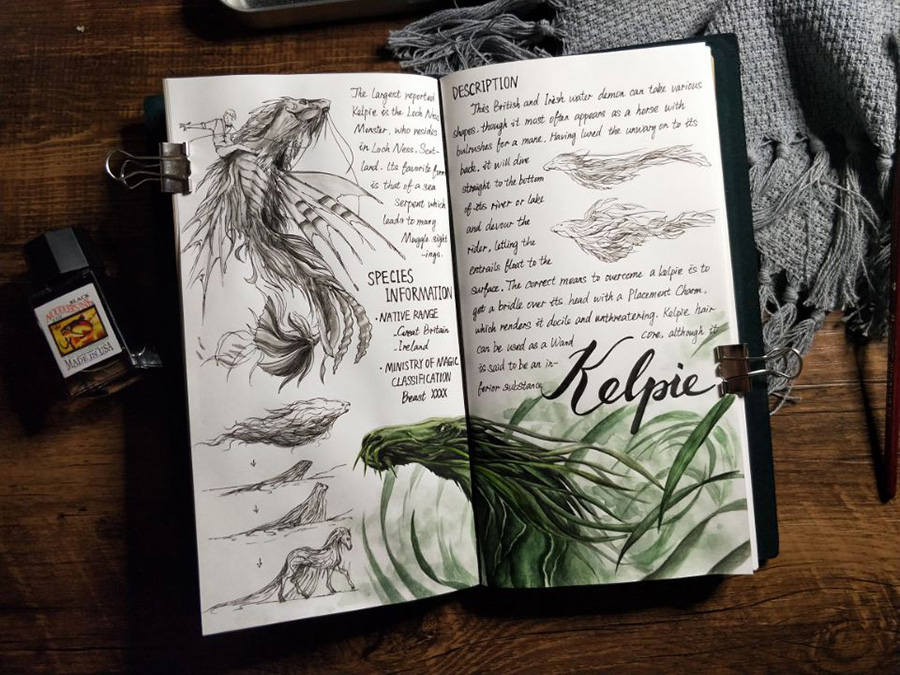 The largest reported
Kelpie is the Loch Ness
Monster, who resides
in Loch Ness, Scot-
land. Its favorite form
is that of a sea
serpent which
leads to many
Muggle sight
-ings.
SPECIES
INFORMATION
· NATIVE RANGE
-Great Britain
-Ireland
· MINISTRY OF MAGIC
CLASSIFICATION
Beast XXXX
DESCRIPTION
This British and Irish water demon can take various
shapes, though it most often appears as a horse with
bulrushes for a mane. Having lured the unwary on to its
back, it will dive
straight to the bottom
of its river or lake
and devour the
rider, letting the
entrails float to the
surface. The correct means to overcome a kelpie is to
get a bridle over its head with a Placement Charm,
which renders it docile and unthreatening. Kelpie hair
can be used as a Wand core, although it
is said to be an in-
ferior substance
Kelpie
BLACK
MADE IN USA